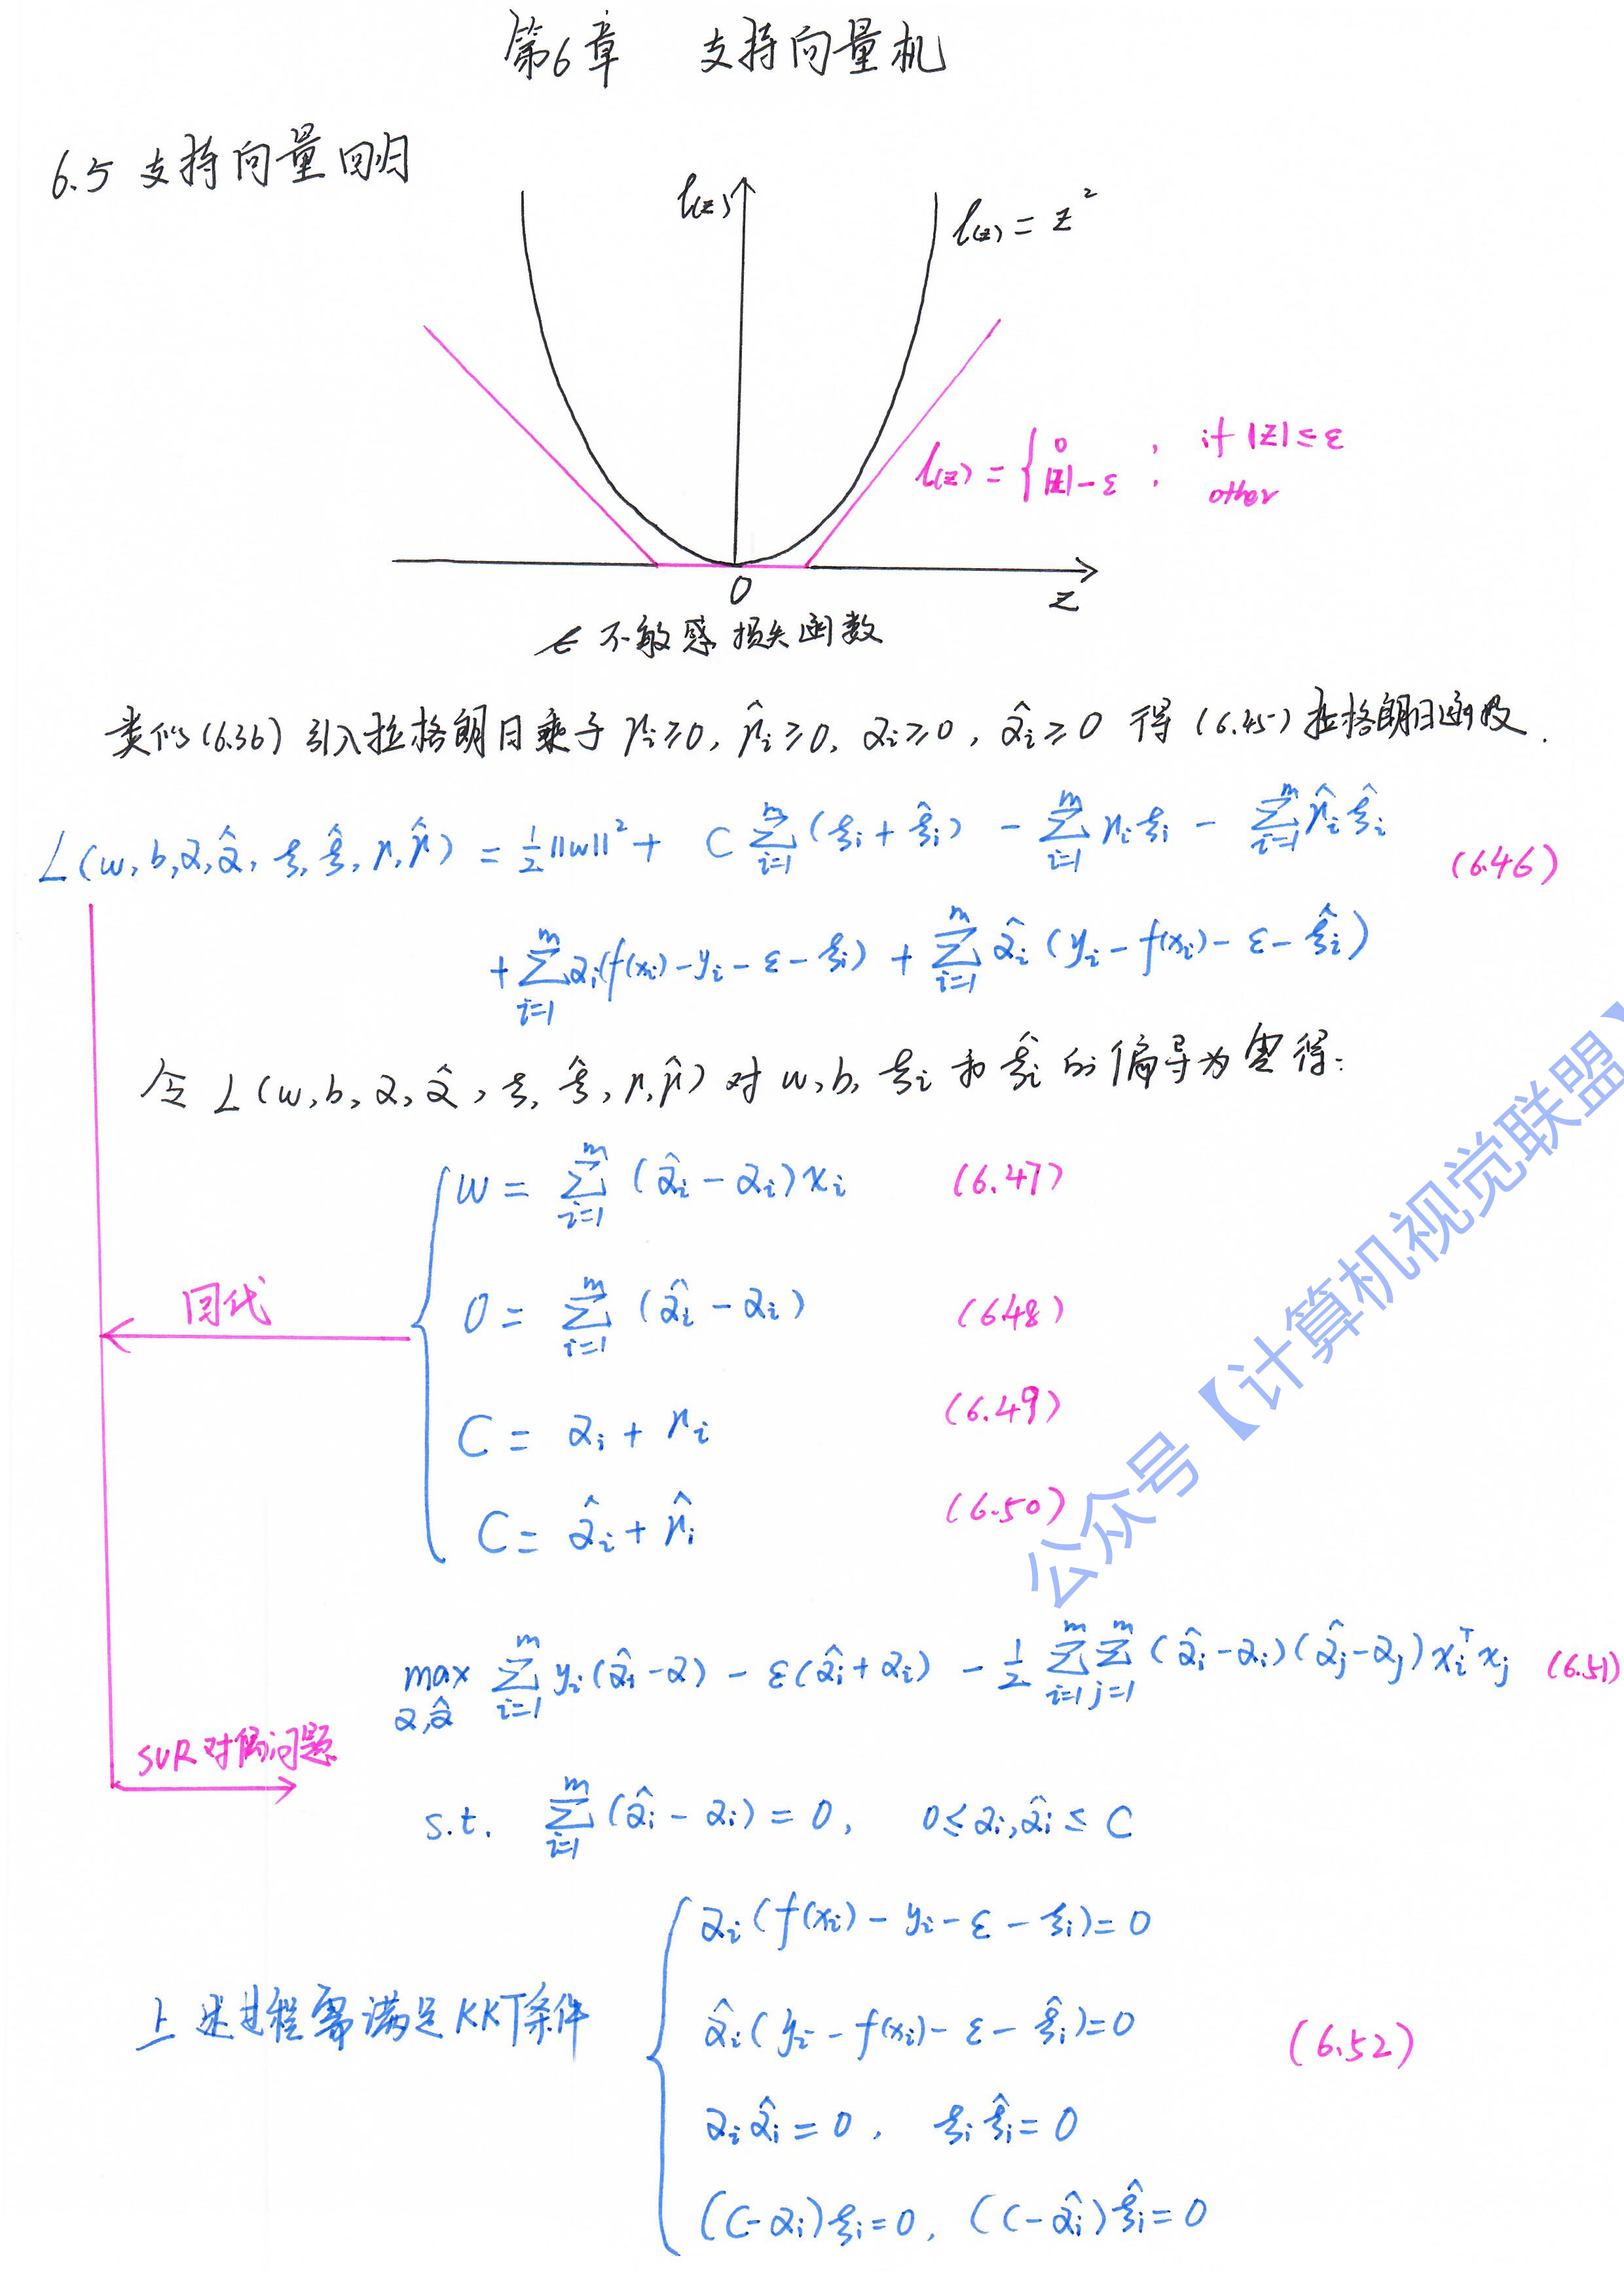 第6章 支持向量机
6.5 支持向量回归
l(z)
l(z) = z²
l(z) = { 0 , if |z| ≤ ε
|z| - ε , other
0
z
ε 不敏感损失函数
类似(6.36) 引入拉格朗日乘子 μi ≥ 0, μ̂i ≥ 0, αi ≥ 0, α̂i ≥ 0 得 (6.45) 拉格朗日函数.
L(w, b, α, α̂, ξ, ξ̂, μ, μ̂) = ½||w||² + C ∑_{i=1}^{m} (ξi + ξ̂i) - ∑_{i=1}^{m} μi ξi - ∑_{i=1}^{m} μ̂i ξ̂i (6.46)
+ ∑_{i=1}^{m} αi(f(xi) - yi - ε - ξi) + ∑_{i=1}^{m} α̂i (yi - f(xi) - ε - ξ̂i)
令 L(w, b, α, α̂, ξ, ξ̂, μ, μ̂) 对 w, b, ξi 和 ξ̂i 的偏导为零得:
w = ∑_{i=1}^{m} (α̂i - αi) xi (6.47)
回代
0 = ∑_{i=1}^{m} (α̂i - αi) (6.48)
C = αi + μi (6.49)
C = α̂i + μ̂i (6.50)
max_{α, α̂} ∑_{i=1}^{m} yi(α̂i - α) - ε(α̂i + αi) - ½ ∑_{i=1}^{m} ∑_{j=1}^{m} (α̂i - αi)(α̂j - αj) xi^T xj (6.51)
SVR对偶问题
s.t. ∑_{i=1}^{m} (α̂i - αi) = 0, 0 ≤ αi, α̂i ≤ C
αi (f(xi) - yi - ε - ξi) = 0
上述过程需满足KKT条件
α̂i (yi - f(xi) - ε - ξ̂i) = 0 (6.52)
αi α̂i = 0, ξi ξ̂i = 0
(C - αi) ξi = 0, (C - α̂i) ξ̂i = 0
公众号【计算机视觉联盟】